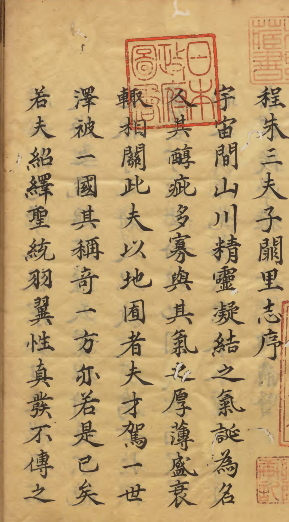 程朱三夫子闕里志序
宇宙間山川精靈凝結之氣誕為名
其醇疵多寡與其氣厚薄盛衰
輙相關此夫以地囿者夫才駕一世
澤被一國其稱奇一方亦若是已矣
若夫紹繹聖統羽翼性真發不傳之
日本
政府
圖書
藏書